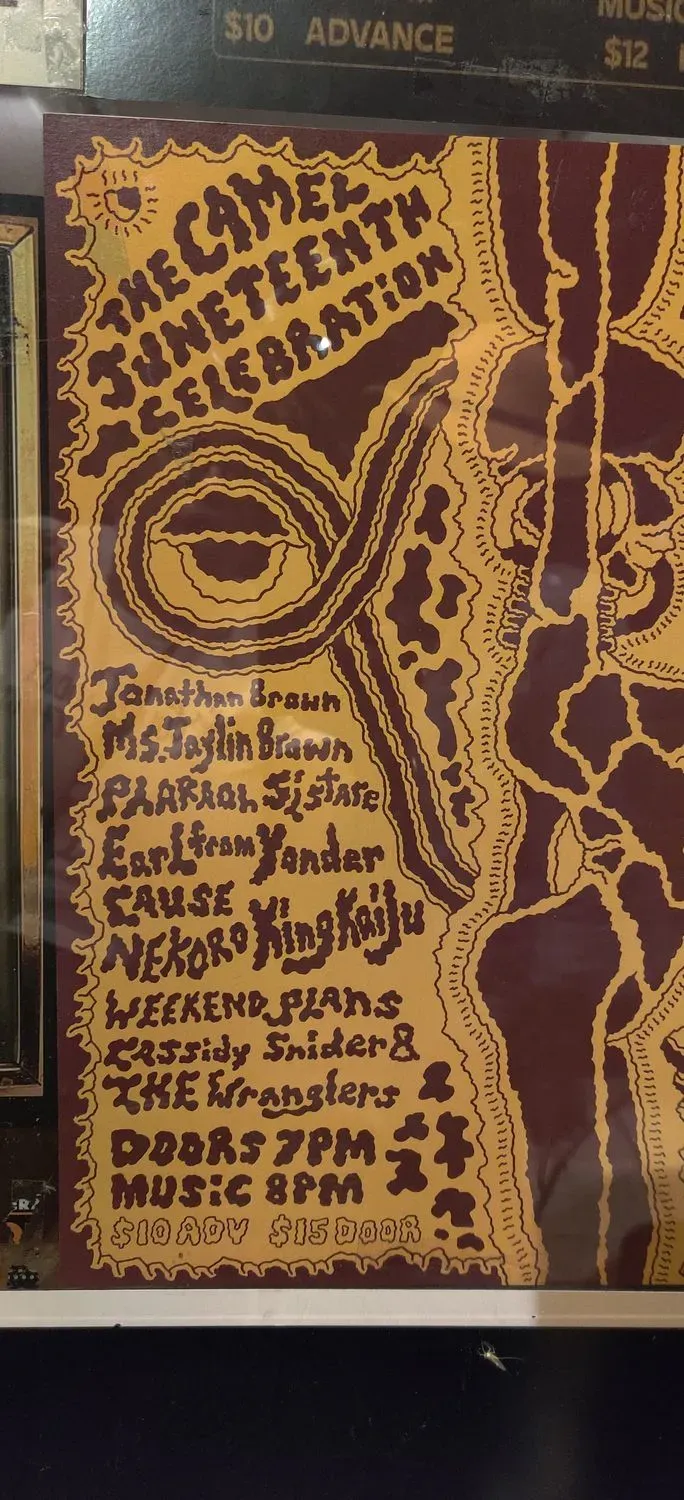 $10 ADVANCE
MUSIC
$12
THE CAMEL
JUNETEENTH
CELEBRATION
Jonathan Brown
Ms. Jaylin Brown
PHARAOH Sistare
Earl from Yonder
CAUSE
NEKORO King Kaiju
WEEKEND PLANS
Cassidy Snider &
THE Wranglers
DOORS 7PM
MUSiC 8PM
$10 ADV $15 DOOR